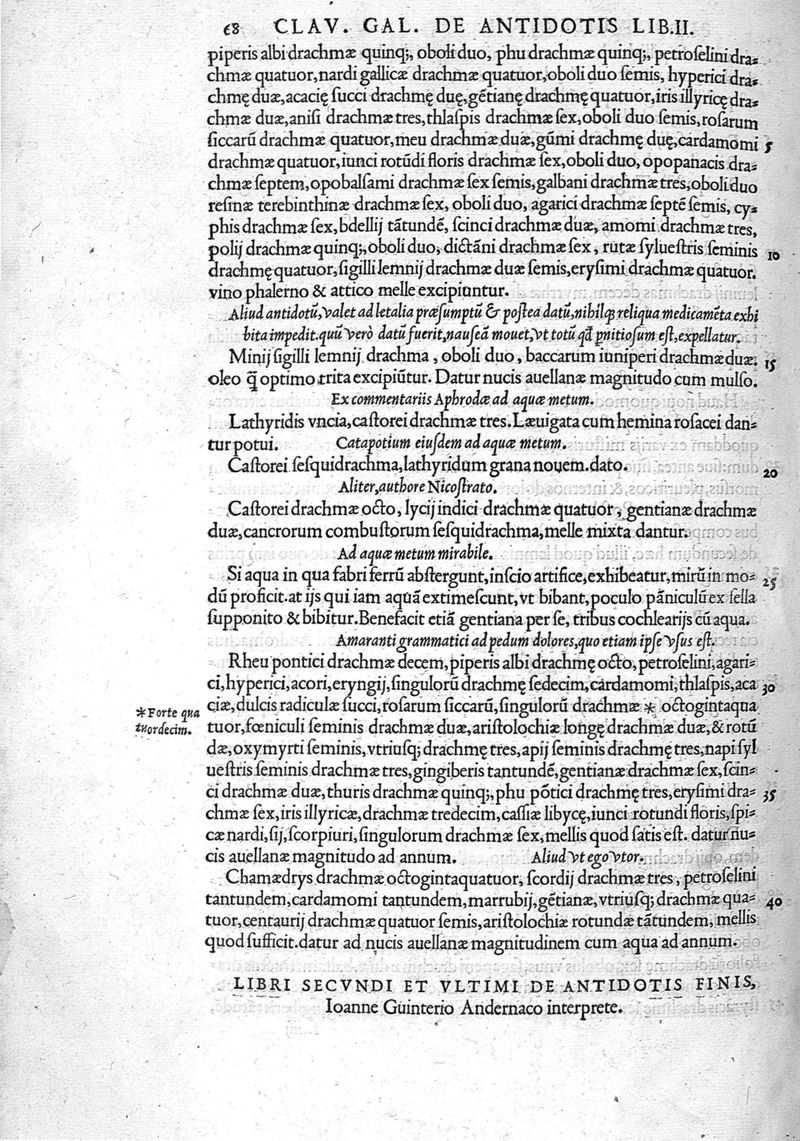 68 CLAV. GAL. DE ANTIDOTIS LIB.II.
piperis albi drachmæ quinq;, oboli duo, phu drachmæ quinq;, petroſelini dra-
chmæ quatuor, nardi gallicæ drachmæ quatuor, oboli duo ſemis, hyperici dra-
chmę duæ, acacię ſucci drachmę duę, gẽtianę drachmę quatuor, iris illyricę dra-
chmæ duæ, aniſi drachmæ tres, thlaſpis drachmæ ſex, oboli duo ſemis, roſarum
ſiccarũ drachmæ quatuor, meu drachmæ duæ, gũmi drachmę duę, cardamomi 5
drachmæ quatuor, iunci rotũdi floris drachmæ ſex, oboli duo, opopanacis dra-
chmæ ſeptem, opobalſami drachmæ ſex ſemis, galbani drachmæ tres, oboli duo
reſinæ terebinthinæ drachmæ ſex, oboli duo, agarici drachmæ ſeptẽ ſemis, cy-
phis drachmæ ſex, bdellij tãtundẽ, ſcinci drachmæ duæ, amomi drachmæ tres,
polij drachmæ quinq;, oboli duo, dictãni drachmæ ſex, rutæ ſylueſtris ſeminis 10
drachmę quatuor, ſigilli lemnij drachmæ duæ ſemis, eryſimi drachmæ quatuor.
vino phalerno & attico melle excipiuntur.
Aliud antidotũ, valet ad letalia præſumptũ & poſtea datũ, nihilq; reliqua medicamẽta exhi
bita impedit. quũ verò datũ fuerit, nauſeã mouet, vt totũ qđ pnitioſum eſt, expellatur.
Minij ſigilli lemnij drachma, oboli duo, baccarum iuniperi drachmæ duæ. 15
oleo q̃ optimo trita excipiũtur. Datur nucis auellanæ magnitudo cum mulſo.
Ex commentariis Aphrodæ ad aquæ metum.
Lathyridis vncia, caſtorei drachmæ tres. Læuigata cum hemina roſacei dan-
tur potui. Catapotium eiuſdem ad aquæ metum.
Caſtorei ſeſquidrachma, lathyridum grana nouem. dato. 20
Aliter, authore Nicoſtrato.
Caſtorei drachmæ octo, lycij indici drachmæ quatuor, gentianæ drachmæ
duæ, cancrorum combuſtorum ſeſquidrachma, melle mixta dantur.
Ad aquæ metum mirabile.
Si aqua in qua fabri ferrũ abſtergunt, inſcio artifice, exhibeatur, mirũ in mo- 25
dũ proficit. at ijs qui iam aquã extimeſcunt, vt bibant, poculo pãniculũ ex ſella
ſupponito & bibitur. Benefacit etiã gentiana per ſe, tribus cochlearijs cũ aqua.
Amaranti grammatici ad pedum dolores, quo etiam ipſe vſus eſt.
Rheu pontici drachmæ decem, piperis albi drachmę octo, petroſelini, agari-
ci, hyperici, acori, eryngij, ſingulorũ drachmę ſedecim, cardamomi, thlaſpis, aca 30
ciæ, dulcis radiculæ ſucci, roſarum ſiccarũ, ſingulorũ drachmæ * octogintaqua
*Forte qua
tuordecim.
tuor, fœniculi ſeminis drachmæ duæ, ariſtolochiæ longę drachmæ duæ, & rotũ
dæ, oxymyrti ſeminis, vtriuſq; drachmę tres, apij ſeminis drachmę tres, napi ſyl
ueſtris ſeminis drachmæ tres, gingiberis tantundẽ, gentianæ drachmæ ſex, ſcin-
ci drachmæ duæ, thuris drachmæ quinq;, phu põtici drachmę tres, eryſimi dra- 35
chmæ ſex, iris illyricæ, drachmæ tredecim, caſſiæ libycę, iunci rotundi floris, ſpi-
cæ nardi, ſij, ſcorpiuri, ſingulorum drachmæ ſex, mellis quod ſatis eſt. datur nu-
cis auellanæ magnitudo ad annum. Aliud vt ego vtor.
Chamædrys drachmæ octogintaquatuor, ſcordij drachmæ tres, petroſelini
tantundem, cardamomi tantundem, marrubij, gẽtianæ, vtriuſq; drachmæ qua- 40
tuor, centaurij drachmæ quatuor ſemis, ariſtolochiæ rotundæ tãtundem, mellis
quod ſufficit. datur ad nucis auellanæ magnitudinem cum aqua ad annum.
LIBRI SECVNDI ET VLTIMI DE ANTIDOTIS FINIS,
Ioanne Guinterio Andernaco interprete.